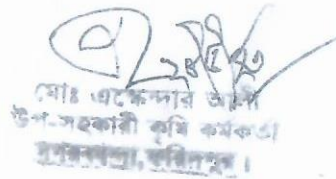 মোঃ এস্কেন্দার আলী
উপ-সহকারী কৃষি কর্মকর্তা
নগরকান্দা, ফরিদপুর।